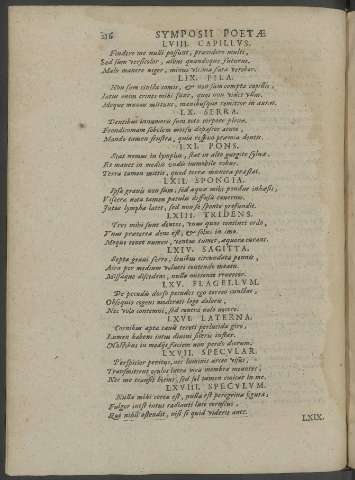 226 SYMPOSII POETÆ
LVIII. CAPILLVS.
Findere me nulli possunt, præcidere multi,
Sed sum versicolor, albus quandoque futurus.
Malo manere niger, minus vltima fata verebor.
LIX. PILA.
Non sum cincta comis, & non sum compta capillis,
Intus enim crines mihi sunt, quos non videt vllus.
Meque manus mittunt, manibusque remittor in auras.
LX. SERRA.
Dentibus innumeris sum toto corpore plena,
Frondicomam sobolem morsu depascor acuto,
Mando tamen frustra, quia respuo præmia dentis.
LXI. PONS.
Stat nemus in lymphis, stat in alto gurgite sylua,
Et manet in mediis vndis immobile robur.
Terra tamen mittit, quod terræ munera præstat.
LXII. SPONGIA.
Ipsa grauis non sum, sed aquæ mihi pondus inhæsit,
Viscera tota tument patulis diffusa cauernis.
Intus lympha latet, sed non se sponte profundit.
LXIII. TRIDENS.
Tres mihi sunt dentes, vnus quos continet ordo,
Vnus præterea dens est, & solus in imo.
Meque tenet numen, ventus timet, æquora curant.
LXIV. SAGITTA.
Septa graui ferro, leuibus circundata pennis,
Aëra per medium volucri contendo meatu.
Missaque discedens, nullo mittente reuertor.
LXV. FLAGELLVM.
De pecudis dorso pecudes ego terreo cunctas,
Obsequio cogens moderati lege doloris,
Nec volo contemni, sed contra nolo nocere.
LXVI. LATERNA.
Cornibus apta cauis tereti perlucida gyro,
Lumen habens intus diuini sideris instar.
Noctibus in mediis faciem non perdo dierum.
LXVII. SPECVLAR.
Perspicior penitus, nec luminis arceo visus,
Transmittens oculos intra mea membra meantes,
Nec me transit hiems, sed sol tamen emicat in me.
LXVIII. SPECVLVM.
Nulla mihi certa est, nulla est peregrina figura;
Fulgor inest intus radianti luce coruscus,
Qui nihil ostendit, nisi si quid viderit ante.
LXIX.